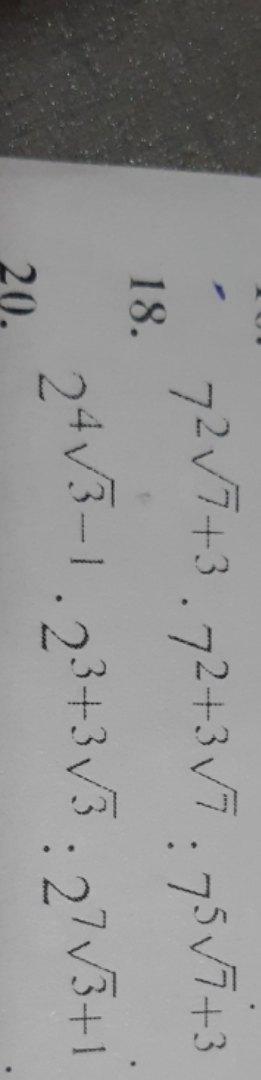 7^{2√7+3} · 7^{2+3√7} : 7^{5√7+3}
18.
2^{4√3−1} · 2^{3+3√3} : 2^{7√3+1}
20.